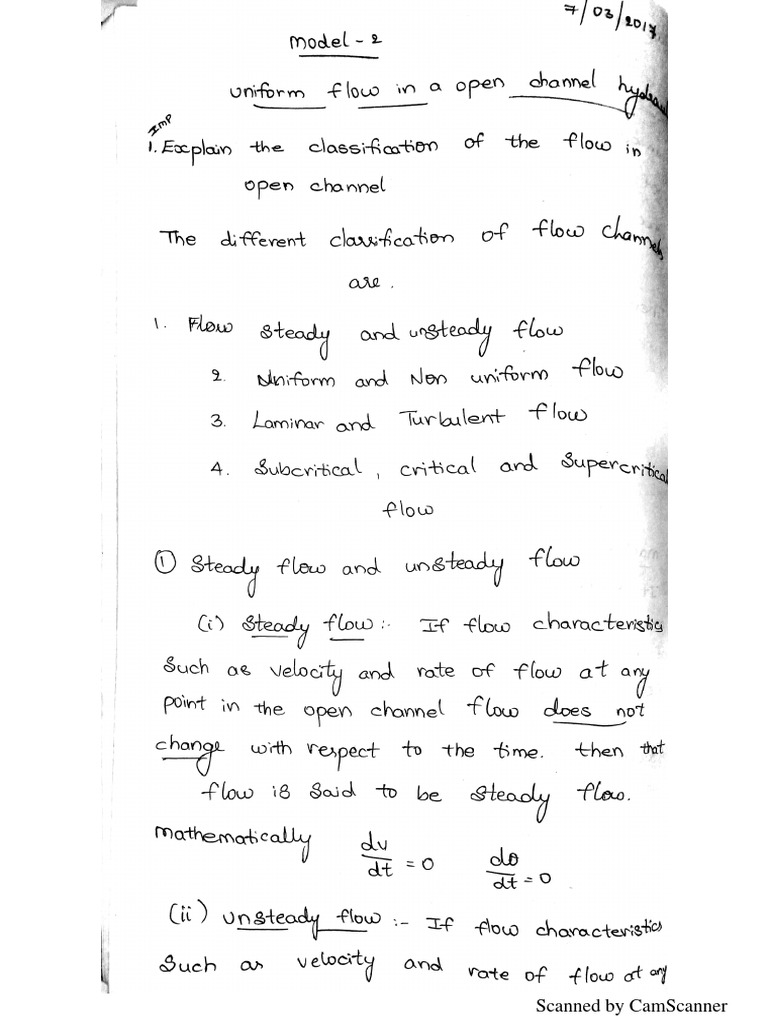 7/03/2017
Model - 2
uniform flow in a open channel
Imp
1. Explain the classification of the flow in
open channel
The different classification of flow channels
are.
1. Flow steady and unsteady flow
2. Uniform and Non uniform flow
3. Laminar and Turbulent flow
4. Subcritical, critical and Supercritical
flow
① Steady flow and unsteady flow
(i) Steady flow :- If flow characteristics
Such as velocity and rate of flow at any
point in the open channel flow does not
change with respect to the time. then that
flow is said to be steady flow.
mathematically dv/dt = 0 dθ/dt = 0
(ii) unsteady flow :- If flow characteristics
Such as velocity and rate of flow at any
Scanned by CamScanner